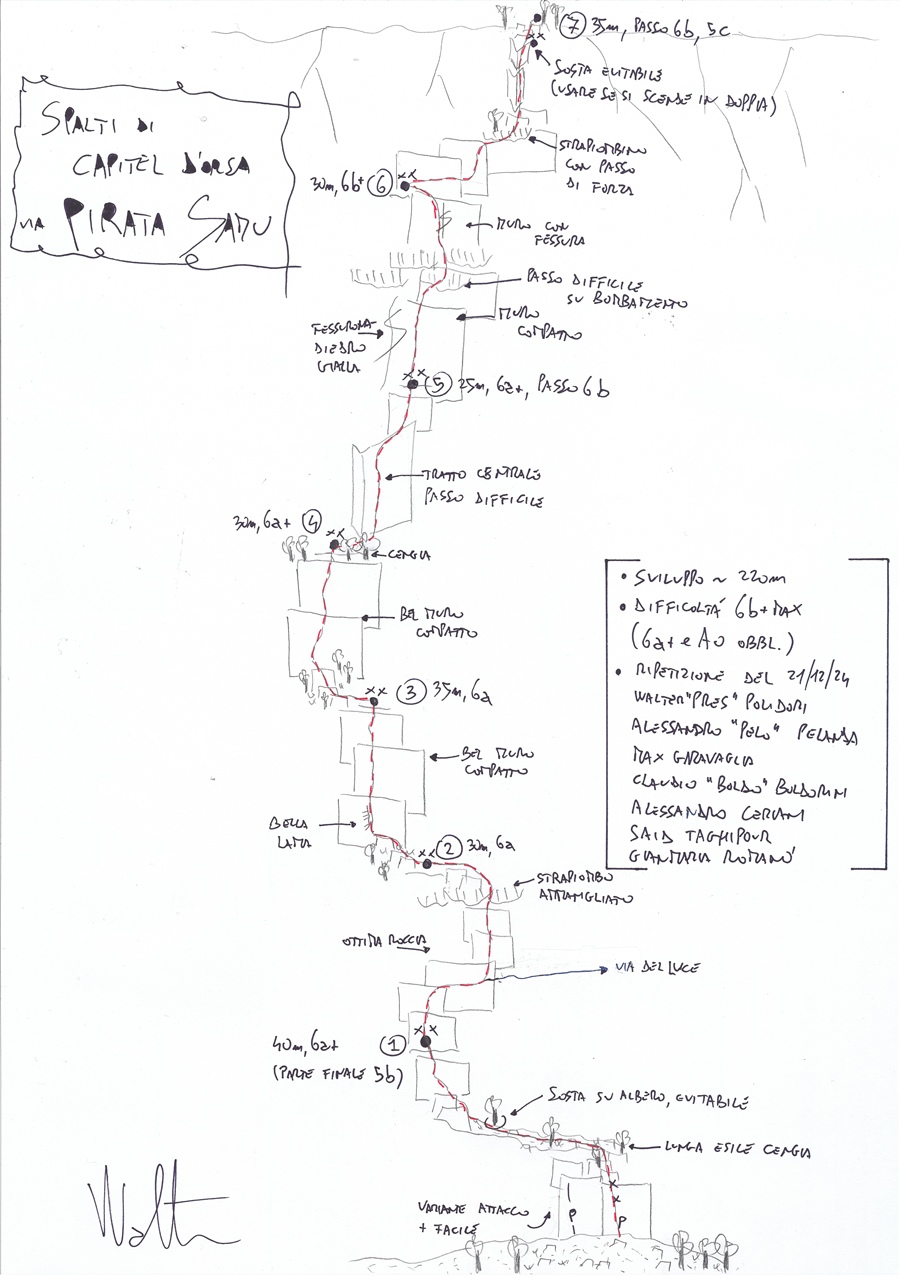 7 35m, PASSO 6b, 5c
SOSTA EVITABILE
(USARE SE SI SCENDE IN DOPPIA)
SPALTI DI
CAPITEL D'ORSA
VIA PIRATA SADU
STRAPIOMBINO
CON PASSO
DI FORZA
30m, 6b+ 6
MURO CON
FESSURA
PASSO DIFFICILE
SU BOMBAMENTO
MURO
COMPATTO
FESSURONA-
DIEDRO
GIALLA
5 25m, 6a+, PASSO 6b
TRATTO CENTRALE
PASSO DIFFICILE
30m, 6a+ 4
CENGIA
BEL MURO
COMPATTO
• SVILUPPO ~ 220m
• DIFFICOLTÁ 6b+ MAX
(6a+ e A0 OBBL.)
• RIPETIZIONE DEL 21/12/24
WALTER "PRES" POLIDORI
ALESSANDRO "PELO" PELANDA
MAX GARAVAGLIA
CLAUDIO "BOLDO" BOLDORINI
ALESSANDRO CERIANI
SAID TAGHIPOUR
GIANMARIA ROMANO'
3 35m, 6a
BEL MURO
COMPATTO
BELLA
LAMA
2 30m, 6a
STRAPIOMBO
AMMANIGLIATO
OTTIMA ROCCIA
VIA DEL LUCE
40m, 6a+ 1
(PARTE FINALE 5b)
SOSTA SU ALBERO, EVITABILE
LUNGA ESILE CENGIA
VARIANTE ATTACCO
+ FACILE
P P
Walter